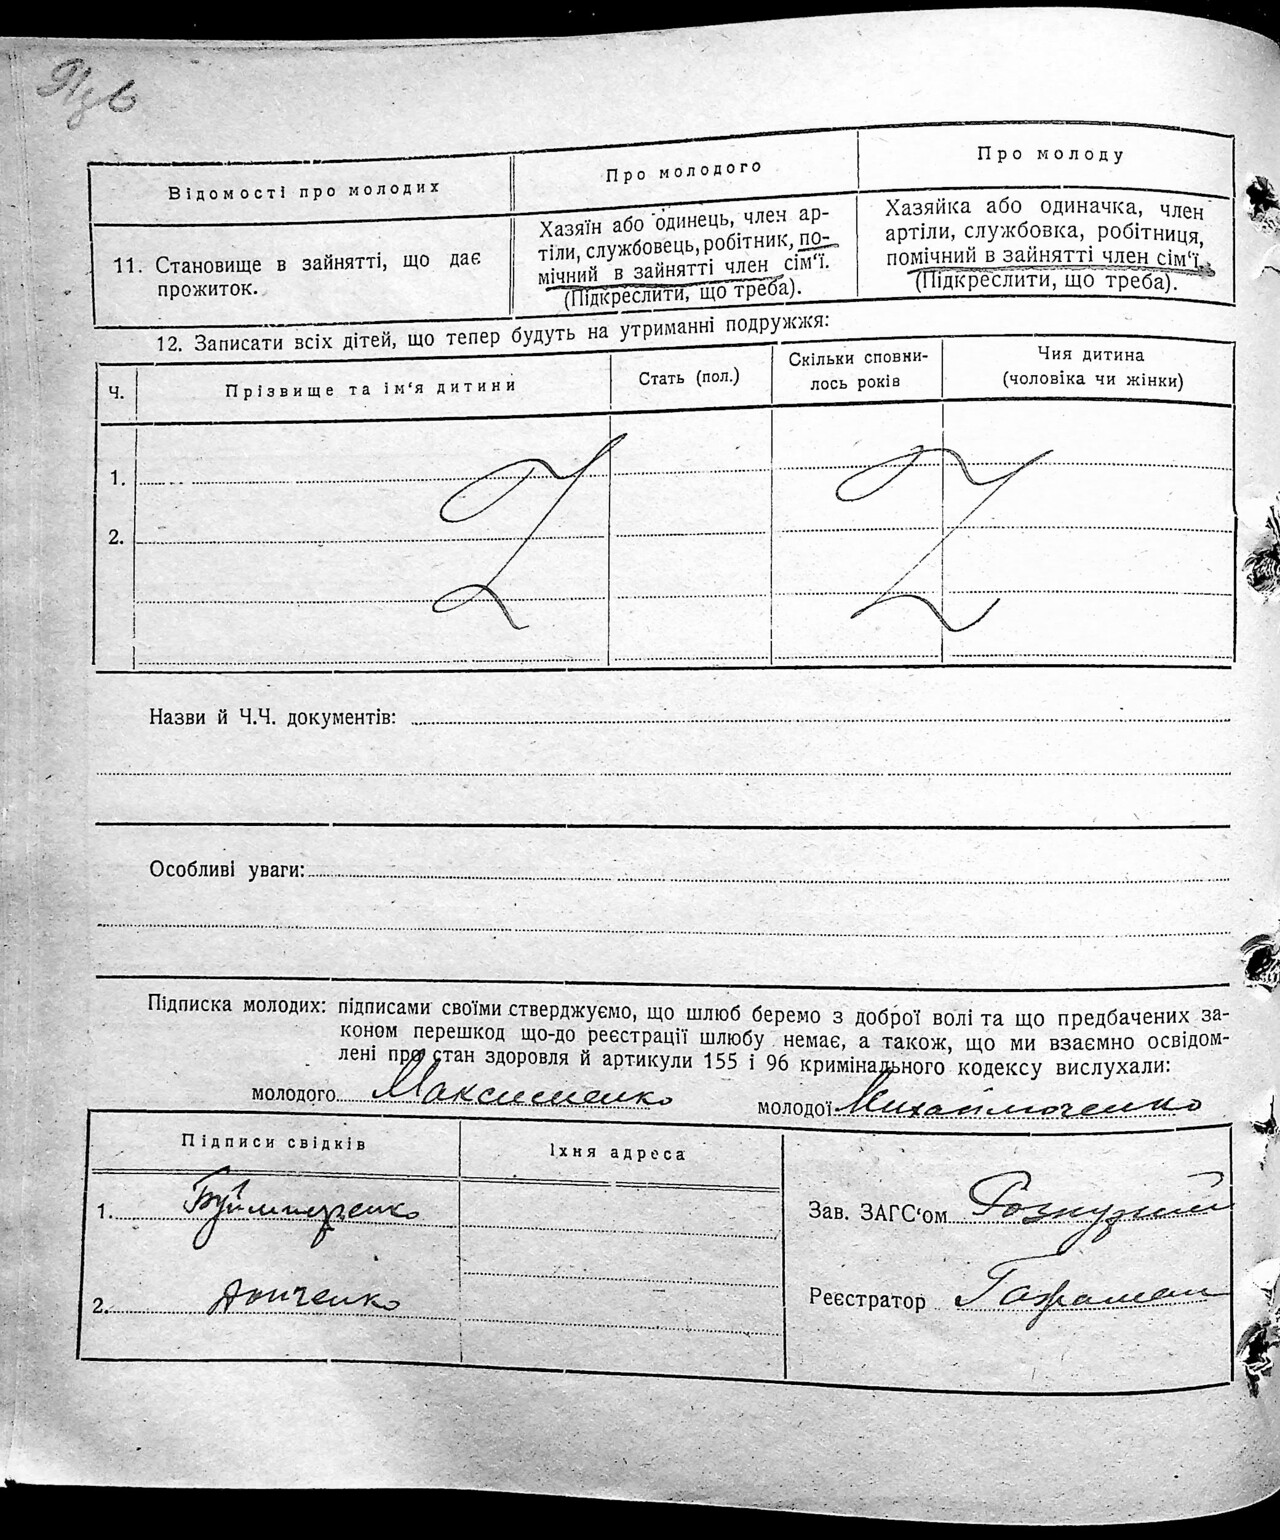 Відомості про молодих
Про молодого
Про молоду
11. Становище в зайнятті, що дає
прожиток.
Хазяїн або одинець, член ар-
тіли, службовець, робітник, по-
мічний в зайнятті член сім‘ї.
(Підкреслити, що треба).
Хазяйка або одиначка, член
артіли, службовка, робітниця,
помічний в зайнятті член сім‘ї.
(Підкреслити, що треба).
12. Записати всіх дітей, що тепер будуть на утриманні подружжя:
Ч.
Прізвище та ім‘я дитини
Стать (пол.)
Скільки сповни-
лось років
Чия дитина
(чоловіка чи жінки)
1.
2.
Назви й Ч.Ч. документів:
Особливі уваги:
Підписка молодих: підписами своїми стверджуємо, що шлюб беремо з доброї волі та що предбачених за-
коном перешкод що-до реєстрації шлюбу немає, а також, що ми взаємно освідом-
лені про стан здоровля й артикули 155 і 96 кримінального кодексу вислухали:
молодого Максименко
молодої Михайличенко
Підписи свідків
Їхня адреса
1.
2. Донченко
Зав. ЗАГС‘ом
Реєстратор